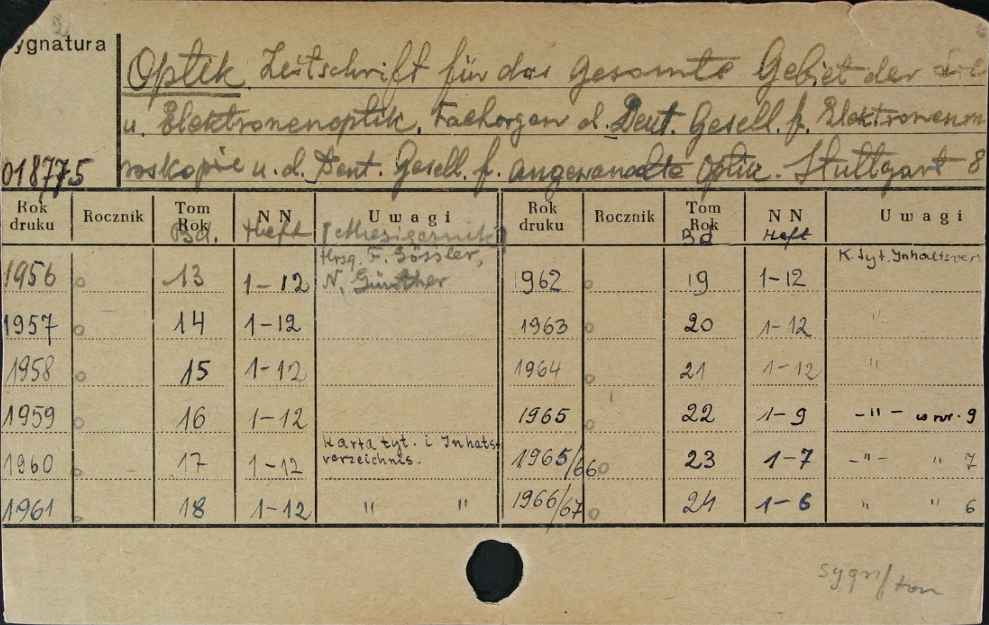 ygnatura
Optik Zeitschrift für das gesamte Gebiet der
u. Elektronenoptik. Fachorgan d. Deut. Gesell. f. Elektronenm
roskopie u. d. Deut. Gesell. f. angewandte Optik. Stuttgart 8
018775
Rok druku Rocznik Tom Rok NN Uwagi Rok druku Rocznik Tom Rok NN Uwagi
Bd. Heft [Miesięcznik] Bd Heft
1956 13 1-12 Hrsg. F. Gössler, N. Günther 1962 19 1-12 K. tyt. Inhaltsver
1957 14 1-12 1963 20 1-12 "
1958 15 1-12 1964 21 1-12 "
1959 16 1-12 1965 22 1-9 -"- w nr. 9
1960 17 1-12 Karta tyt. i Inhats-verzeichnis. 1965/66 23 1-7 -"- " 7
1961 18 1-12 " " 1966/67 24 1-6 " " 6